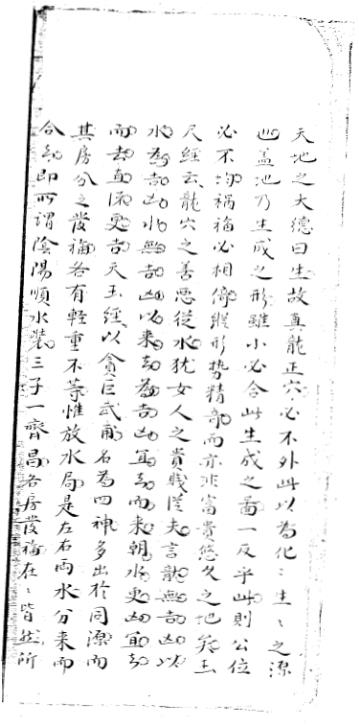 天地之大德曰生故真龍正穴必不外此以為化〻生〻之源
也盖池乃生成之形雖小必合此生成之圖一反乎此則公位
必不均禍福必相停縱形勢精奇而亦非富貴悠久之地矣玉
尺經云龍穴之善惡從水犹女人之貴賤從夫言龍無吉凶以
水為吉凶水無吉凶以来去為吉凶宜去而来朝水更凶宜去
而去直流更吉天玉經以貪巨武甫名為四神多出於同源而
其房分之發福各有輕重不等惟放水局是左右両水分来而
合即所謂陰陽順水裝三子一齊昌各房發福在〻皆然所